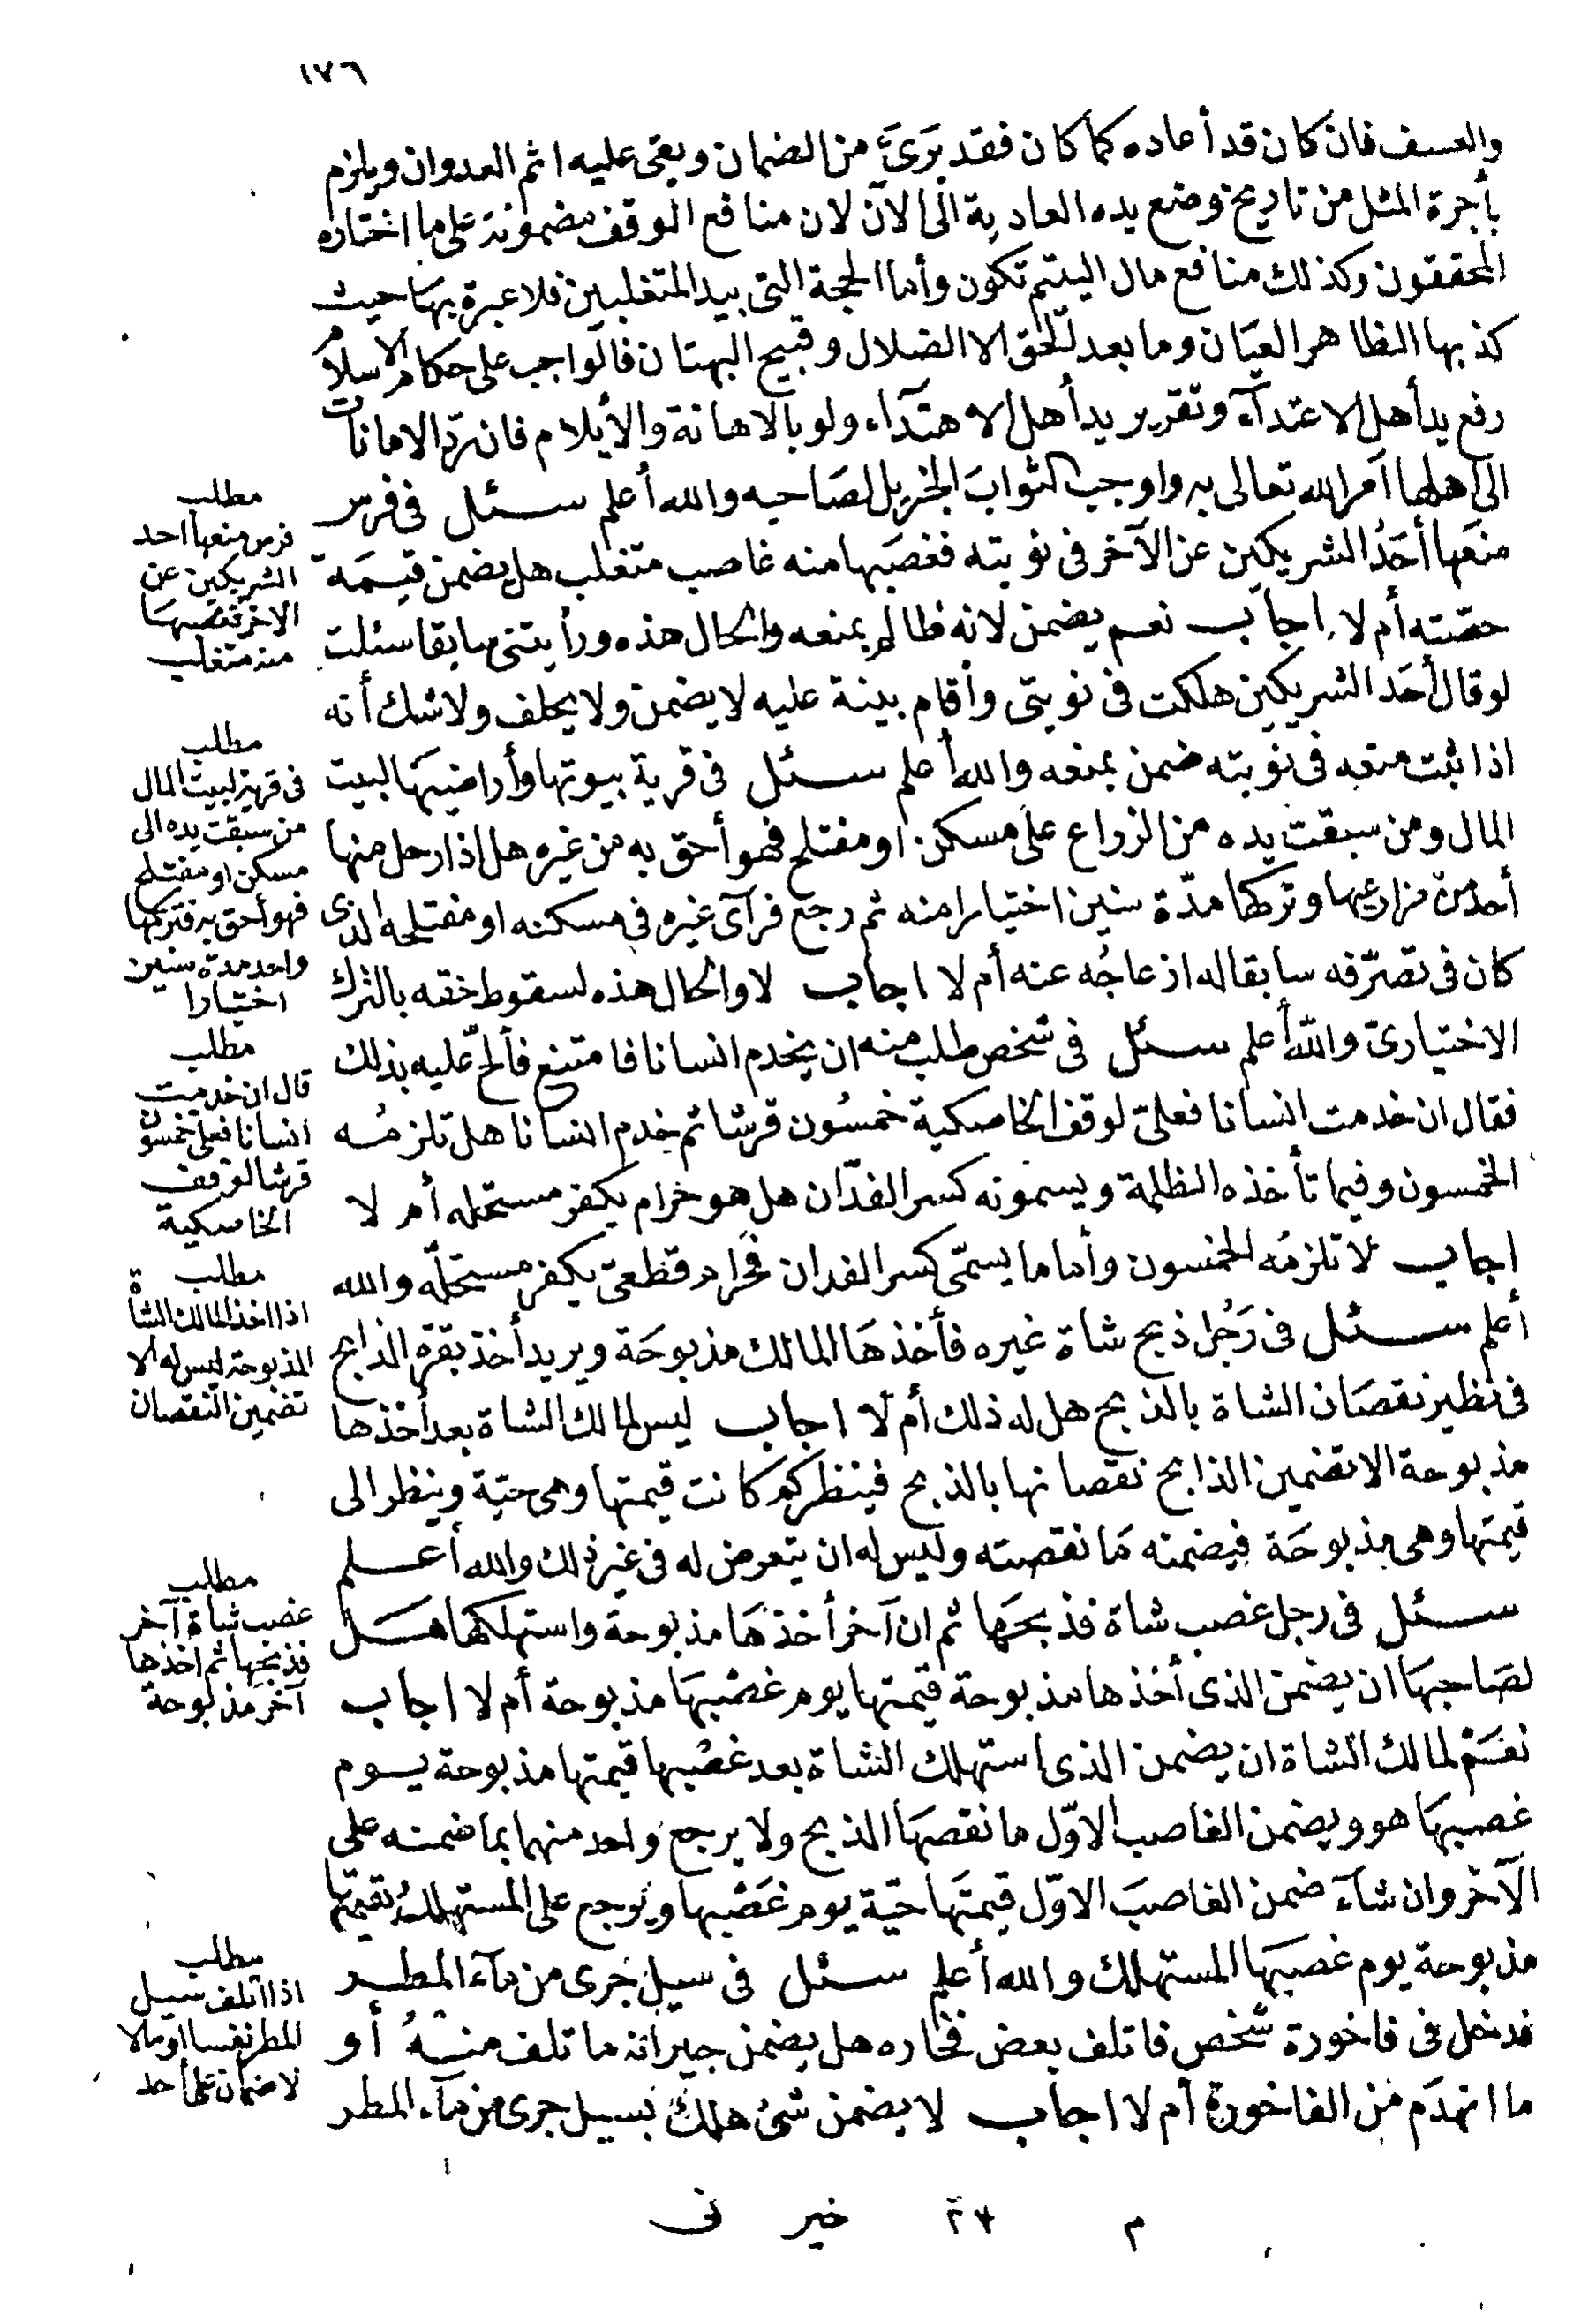 ١٧٦
والعسف فان كان قد أعاده كما كان فقد بَرَىَٔ من الضمان وبقى عليه اثم العدوان ويلزم
بأجرة المثل من تاريخ وضع يده العادية الى الآن لان منافع الوقف مضمونة على ما اختاره
المحققون وكذلك منافع مال اليتيم تكون وأما الحجة التى بيد المتغلبين فلا عبرة بها حيث
كذبها الظاهر العيان وما بعد الحق الا الضلال وقبيح البهتان فالواجب على حكام الاسلام
رفع يد أهل الاعتدآء وتقرير يد أهل الاهتدآء ولو بالاهانة والأيلام فان ردّ الامانات
الى اهلها امر الله تعالى به واوجب الثوابَ الجزيل لصاحبه والله أعلم سئل فى فرس
منعها أحَدُ الشريكين عن الآخر فى نوبته فغصبها منه غاصب متغلب هل يضمن قيمة
حصّته أم لا اجاب نعم يضمن لانه ظالم بمنعه والحال هذه ورأيتنى سابقا سئلت
لو قال أحَد الشريكين هلكت فى نوبتى وأقام بينة عليه لا يضمن ولا يحلف ولا شك أنه
اذا ثبت منعه فى نوبته ضمن بمنعه والله أعلم سئل فى قرية بيوتها وأراضيها لبيت
المال ومن سبقت يده من الزراع على مسكن او مفتلح فهو أحق به من غيره هل اذا رحل منها
أحد من مزارعيها وتركها مدّة سنين اختيارا منه ثم رجع فرآى غيره فى مسكنه او مفتلحه الذى
كان فى تصرّفه سابقا له ازعاجُه عنه أم لا اجاب لا والحال هذه لسقوط حقه بالترك
الاختيارىّ والله أعلم سئل فى شخص طلب منه ان يخدم انسانا فامتنع فألحّ عليه بذلك
فقال ان خدمت انسانا فعلىّ لوقف الخاصكية خمسُون قرشا ثم خدم انسانا هل تلزمُه
الخمسون وفيما تأخذه الظلمة ويسمونه كسر الفدّان هل هو حرام يكفر مستحله أم لا
اجاب لا تلزمُه الخمسون وأما ما يسمّى كسر الفدان فحرام قطعىّ يكفر مستحلّه والله
أعلم سئل فى رَجُل ذبح شاة غيره فأخذهَا المالك مذبوحَة ويريد أخذ بقرة الذابح
فى نظير نقصَان الشاة بالذبح هل له ذلك أم لا اجاب ليس لمالك الشاة بعد أخذها
مذبوحة الا تضمين الذابح نقصانها بالذبح فينظر كم كانت قيمتها وهى حيّة وينظر الى
قيمتها وهى مذبوحَة فيضمنه مَا نقصته وليس له ان يتعرض له فى غير ذلك والله أعلم
سئل فى رجل غصب شاة فذبحَها ثم ان آخر أخذهَا مذبوحة واستهلكها هَل
لصَاحبهَا ان يضمن الذى أخذها مذبوحة قيمتها يوم غصْبهَا مذبوحة أم لا اجاب
نعَمْ لمالك الشاة ان يضمن الذى استهلك الشاة بعد غصْبها قيمتها مذبوحة يوم
غصبهَا هو ويضمن الغاصب الاوّل ما نقصهَا الذبح ولا يرجع واحد منهما بما ضمنه على
الآخر وان شآءَ ضمن الغاصبَ الاوّل قيمتَها حيّة يوم غَصْبها ويرجع على المستهلك بقيمتها
مذبوحة يوم غصبهَا المستهلك والله أعلم سئل فى سيل جرى من مآء المطر
فدخل فى فاخورة شخص فاتلف بعض فخاره هل يضمن جيرانه ما تلف منهُ أو
ما انهدَم من الفاخورة أم لا اجاب لا يضمن شئ هلك بسيل جرى من مآء المطر
مطلب
فرس منعها احد
الشريكين عن
الاخر فغصبهَا
منه متغلب
مطلب
فى قرية لبيت المال
من سبقت يده الى
مسكن او مفتلح
فهو أحق به فتركها
واحد مدة سنين
اختيارا
مطلب
قال ان خدمت
انسانا فعلىّ خمسون
قرشا لوقف
الخاصكية
مطلب
اذا اخذ المالك الشاة
المذبوحة ليس له الا
تضمين النقصان
مطلب
غصب شاة آخر
فذبحها ثم اخذها
آخر مذبوحة
مطلب
اذا اتلف سيل
المطر نفسا او مالا
لا ضمان على أحد
م ٢٣ خير نى